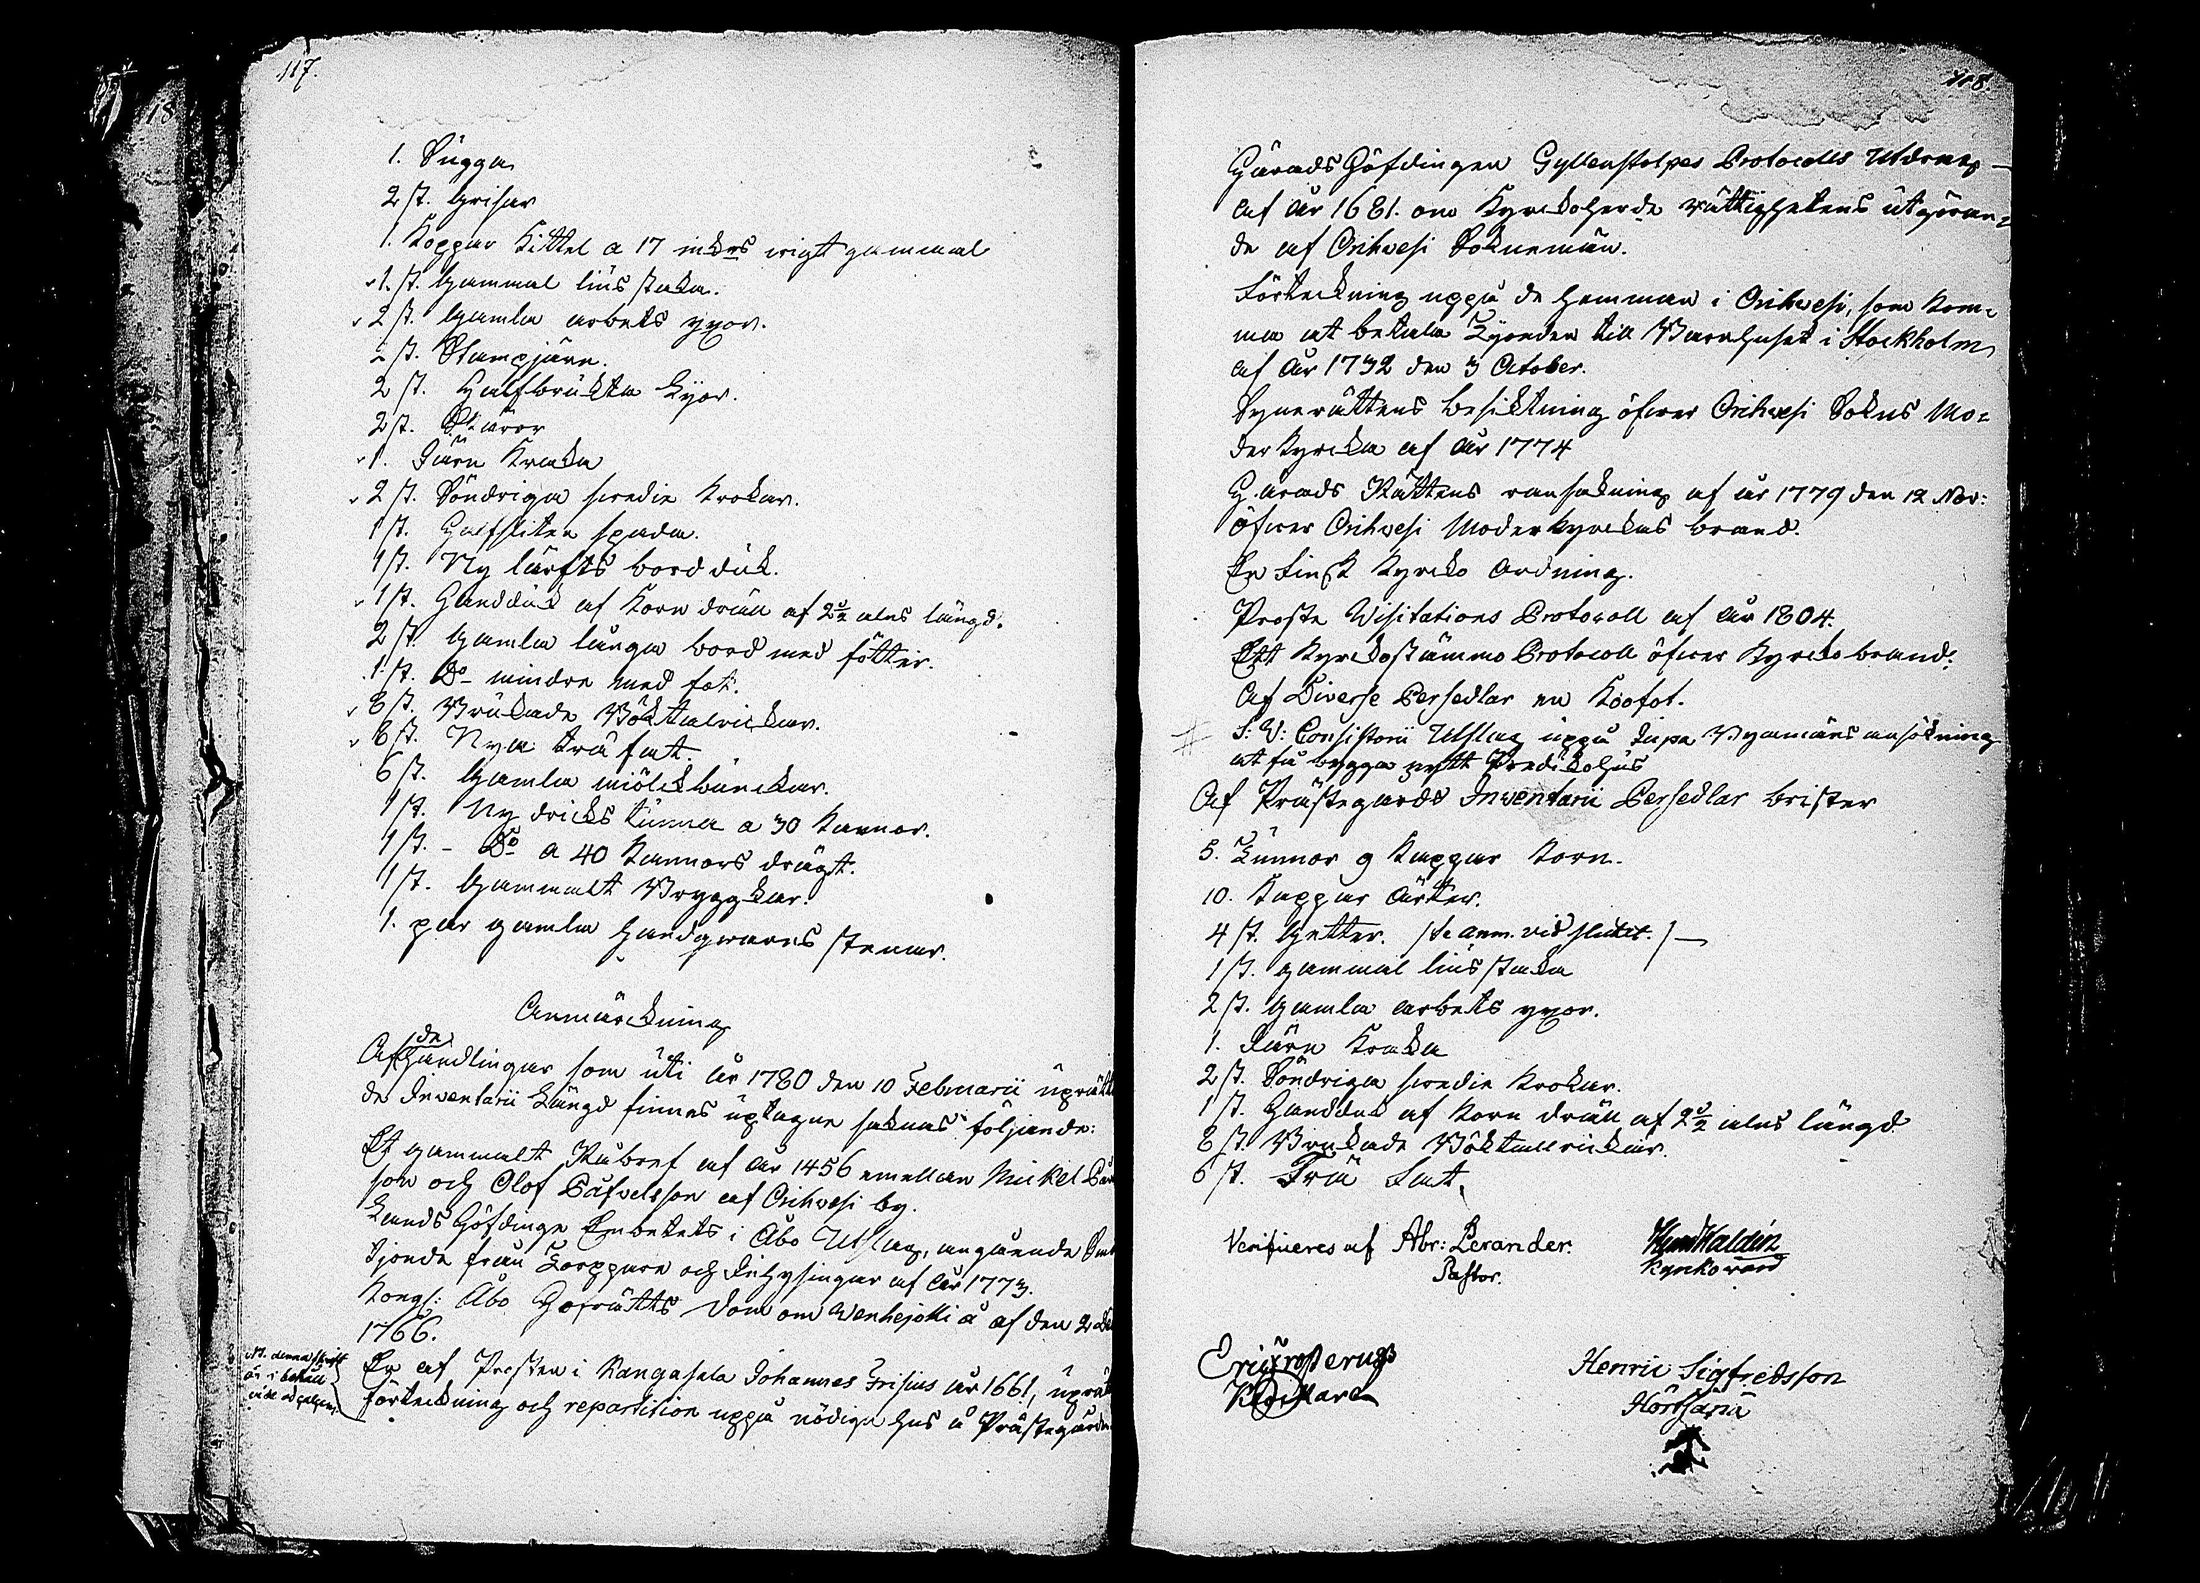 117.
1. Sugga
2 st. Grisar
1. Koppar Kittel a 17 mkrs wigt gammal
1. st. Gammal lius staka.
2 st. Gamla arbets yxor.
2 st. Stampjärn.
2 st. Halfbrukta Lyor.
2 st. Skäror
1. Järn Kraka
2 st. Söndriga swedie krokar.
1 st. Halfsliten spada.
1 st. Ny lärfts bord duk.
1 st. Handduk af Korn dräll af 2½ alns längd.
2 st. Gamla långa bord med fötter.
1. st. Do mindre med fot.
8 st. Brukade Böktalrickar.
6 st. Nya trä fat.
6 st. Gamla miölckbunckar.
1 st. Ny dricks tunna a 30 Kannor.
1 st. - Do a 40 Kannors drägt.
1 st. Gammalt Bryggkar.
1. par gamla handqwarns stenar.
Anmärckning
Af de Handlingar som uti år 1780 den 10 Februarii uprätta
de Inventarii Längd finnas uptagne saknas följande:
Et gammalt Kiöbref af år 1456 emellan Mickel
son och Olof Påfvelsson af Orihvesi by.
Lands Höfdinge Embetets i Åbo Utslag, angående
tjonde från Torppare och Inhysingar af år 1773.
Kongl: Åbo Hofrätts Dom om Wenhejokki å af den 2
1766.
NB. denna skrift
är i behåll
En af Prosten i Kangasala Johannes Frisius år 1661, uprät
förteckning och repartition uppå nödiga hus å Prästegården
118.
Härads Höfdingen Gyllenstolpes Protocolls Utdrag
af år 1681. om Kyrckoherde rättighetens utgöran-
de af Orihvesi Soknemän.
Förteckning uppå de hemman i Orihvesi, som kom-
ma at betala Tjonden till Barnhuset i Stockholm
af år 1732 den 3 October.
Synerättens besiktning öfver Orihvesi Sokns Mo-
derkyrcka af år 1774
Härads Rättens ransakning af år 1779 den 12 Nov:
öfver Orihvesi Moderkyrckas brand.
En Finsk Kyrcko Ordning.
Proste Visitations Protocoll af år 1804.
Ett Kyrckostämmo Protocoll öfver Kyrcko brand.
Af Diverse Persedlar en Koofot.
S: V: Consistorii Utslag uppå Byamäns ansökning
at få bygga nytt Predikohus
Af Prästegårds Inventarii Persedlar brister
5. Tunnor 9 Kappar Korn.
10. Kappar Ärter.
4 st. Getter. /se anm. vid slutet./
1 st. gammal lius staka
2 st. gamla arbets yxor.
1. Järn Kraka
2 st. Söndriga swedie krokar.
1 st. Handduk af Korn dräll af 2½ alns längd
8 st. Brukade Böktallrickar.
6 st. Trä Fat.
Verifieres af Abr: Lerander.
Pastor.
Waldén
Kyrkovärd
Henric Sigfredsson